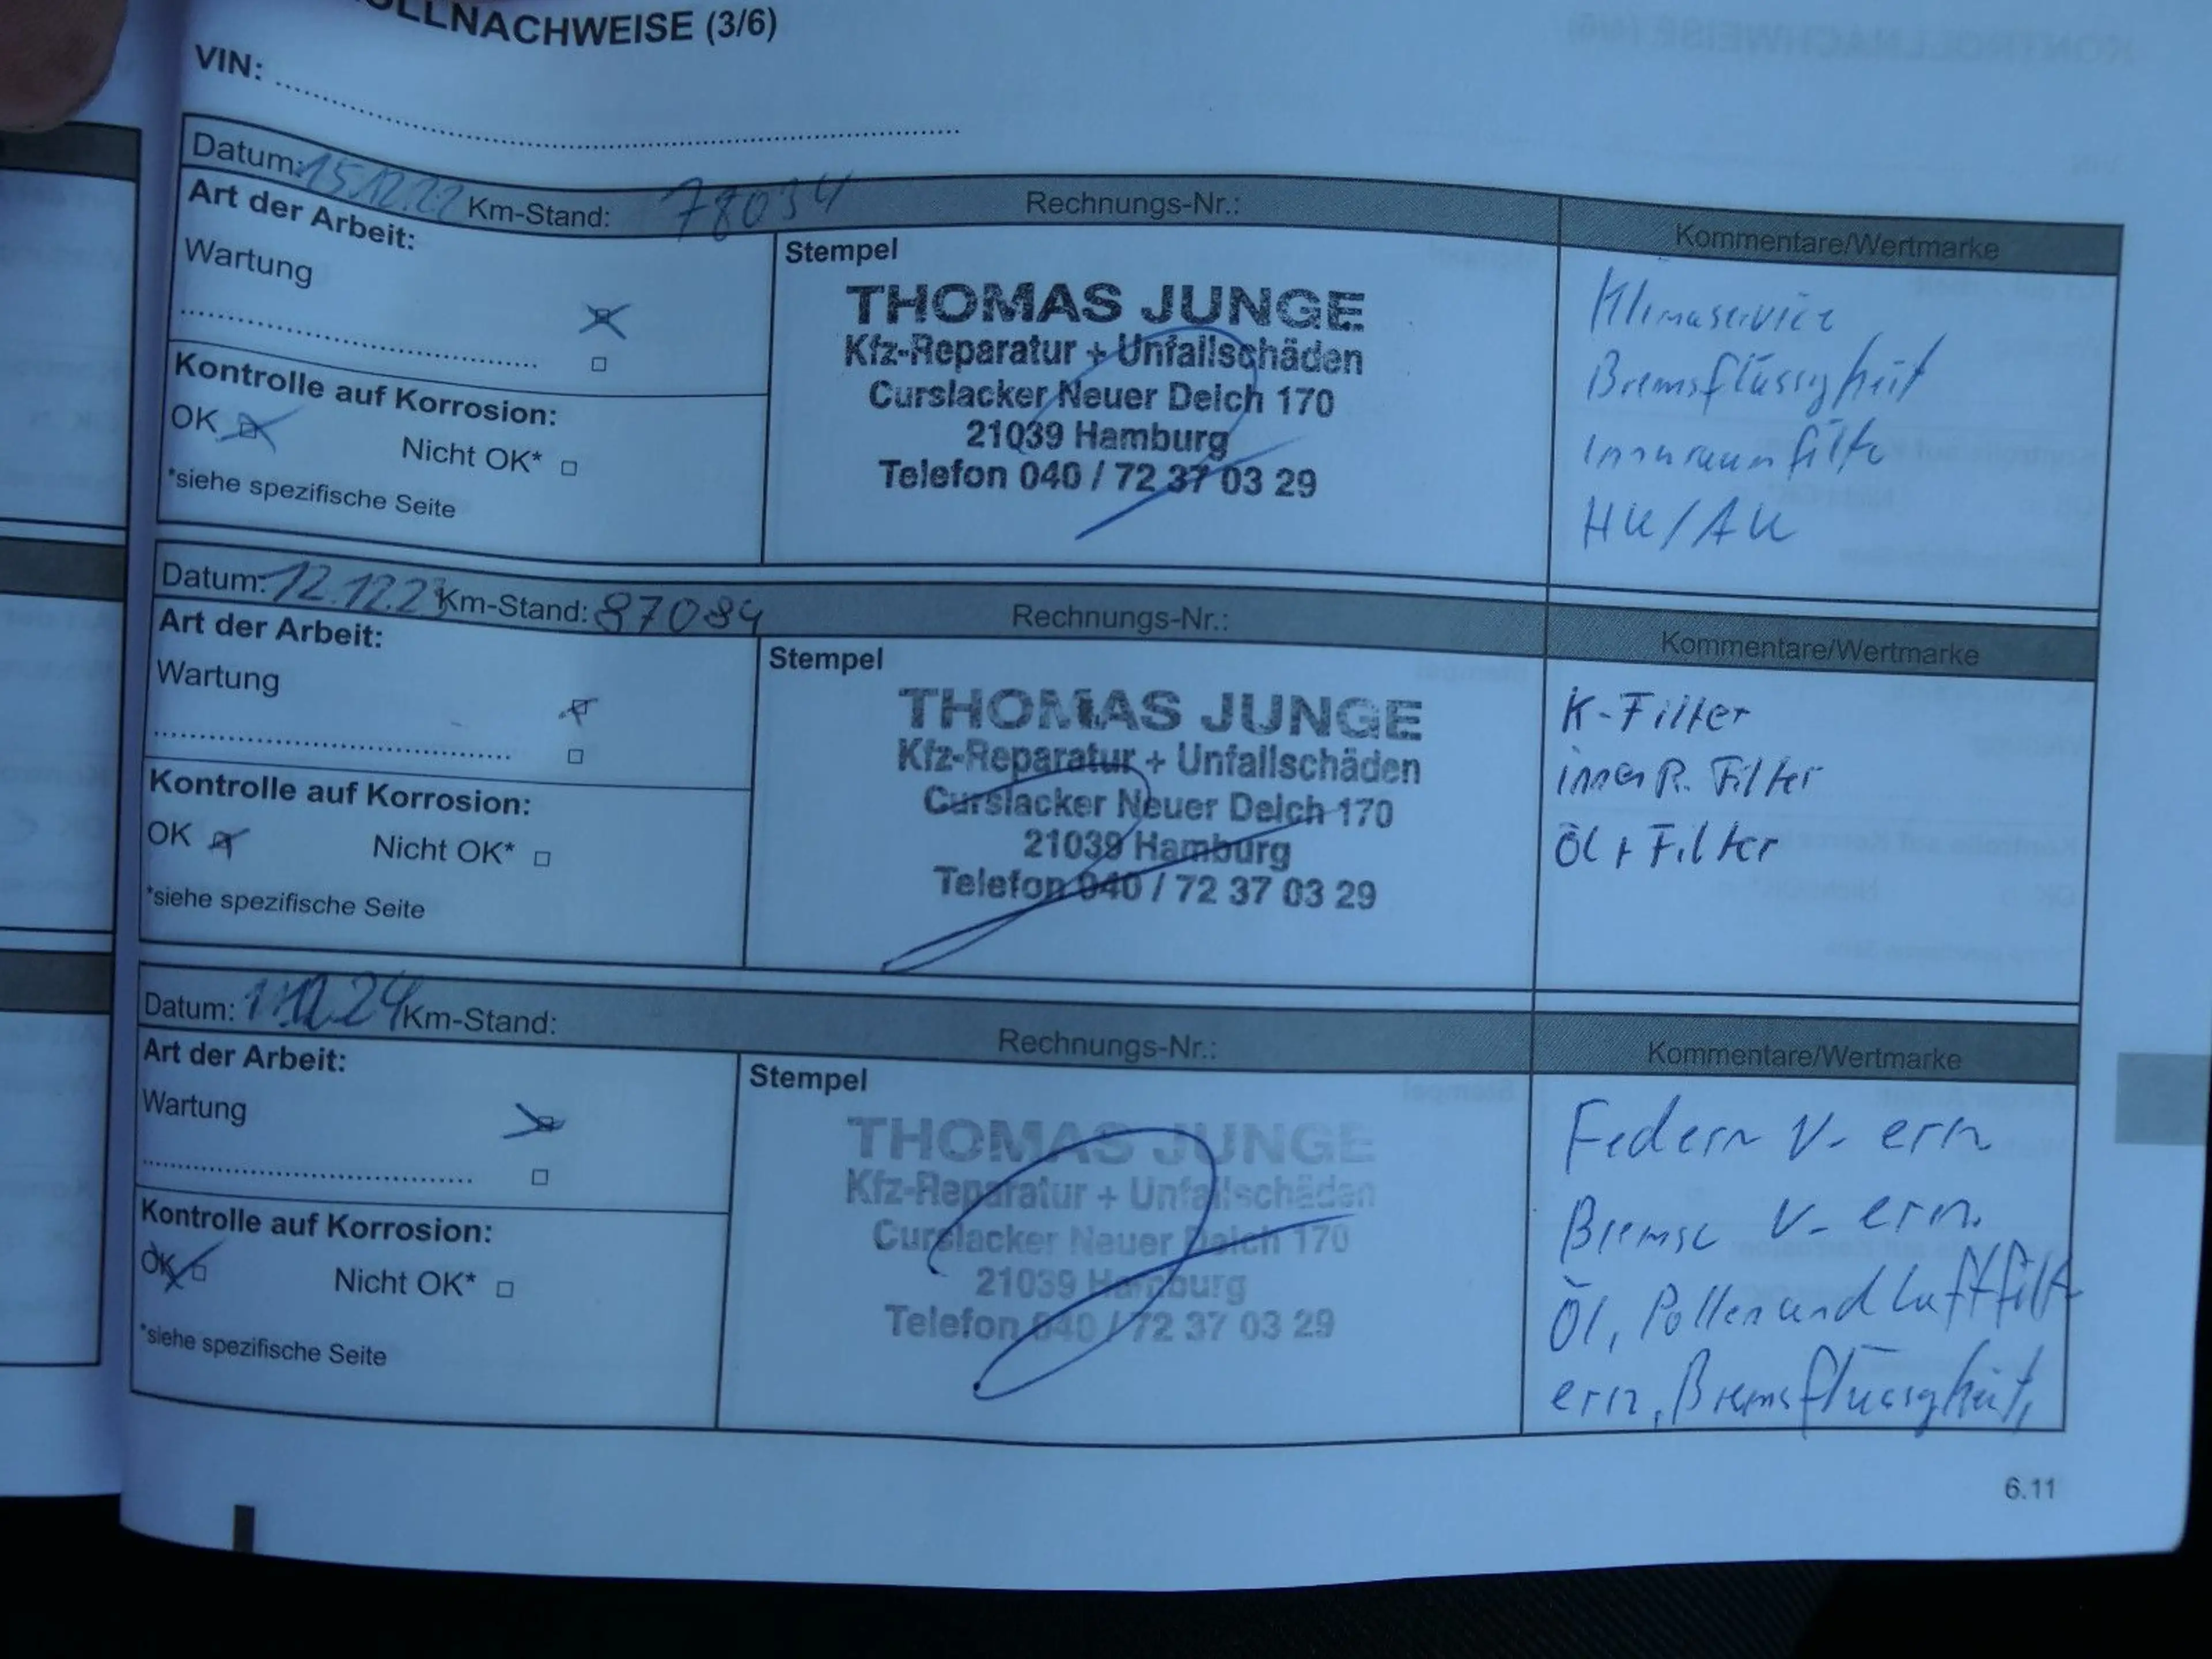 OLLNACHWEISE (3/6)
VIN: ........
Datum: 15.12.22 Km-Stand: 78034 Rechnungs-Nr.: Kommentare/Wertmarke
Art der Arbeit:
Wartung
Kontrolle auf Korrosion:
OK Nicht OK*
*siehe spezifische Seite
Stempel
THOMAS JUNGE
Kfz-Reparatur + Unfallschäden
Curslacker Neuer Deich 170
21039 Hamburg
Telefon 040 / 72 37 03 29
Klimaservice
Bremsflüssigkeit
Innenraumfilte
HU/AU
Datum: 12.12.23 Km-Stand: 87084 Rechnungs-Nr.: Kommentare/Wertmarke
Art der Arbeit:
Wartung
Kontrolle auf Korrosion:
OK Nicht OK*
*siehe spezifische Seite
Stempel
THOMAS JUNGE
Kfz-Reparatur + Unfallschäden
Curslacker Neuer Deich 170
21039 Hamburg
Telefon 040 / 72 37 03 29
K-Filter
innen R. Filter
Öl + Filter
Datum: Km-Stand: Rechnungs-Nr.: Kommentare/Wertmarke
Art der Arbeit:
Wartung
Kontrolle auf Korrosion:
OK Nicht OK*
*siehe spezifische Seite
Stempel
THOMAS JUNGE
Kfz-Reparatur + Unfallschäden
Curslacker Neuer Deich 170
21039 Hamburg
Telefon 040 / 72 37 03 29
Federn V- ern
Bremse V- ern.
Öl, Pollen und Luftfilt
ern, Bremsflüssigkeit,
6.11